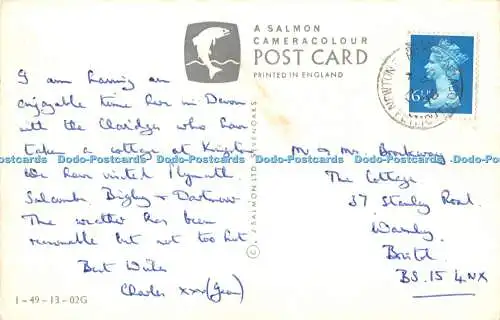 A SALMON
CAMERACOLOUR
POST CARD
PRINTED IN ENGLAND
I am having an
enjoyable time here in Devon
with the Claridges who have
taken a cottage at Kingston
We have visited Plymouth
Salcombe, Bigbury & Dartmoor
The weather has been
reasonable but not too hot
Best Wishes
Charles xxx
1-49-13-02G
© J SALMON LTD SEVENOAKS
NEWTON
6½P
Mr & Mrs Brockway
The Cottage
37 Stanley Road
Warmley
Bristol
BS.15 4NX
Dodo-Postcards Dodo-Postcards Dodo-Postcards Dodo-Postcards Dodo-Postcards